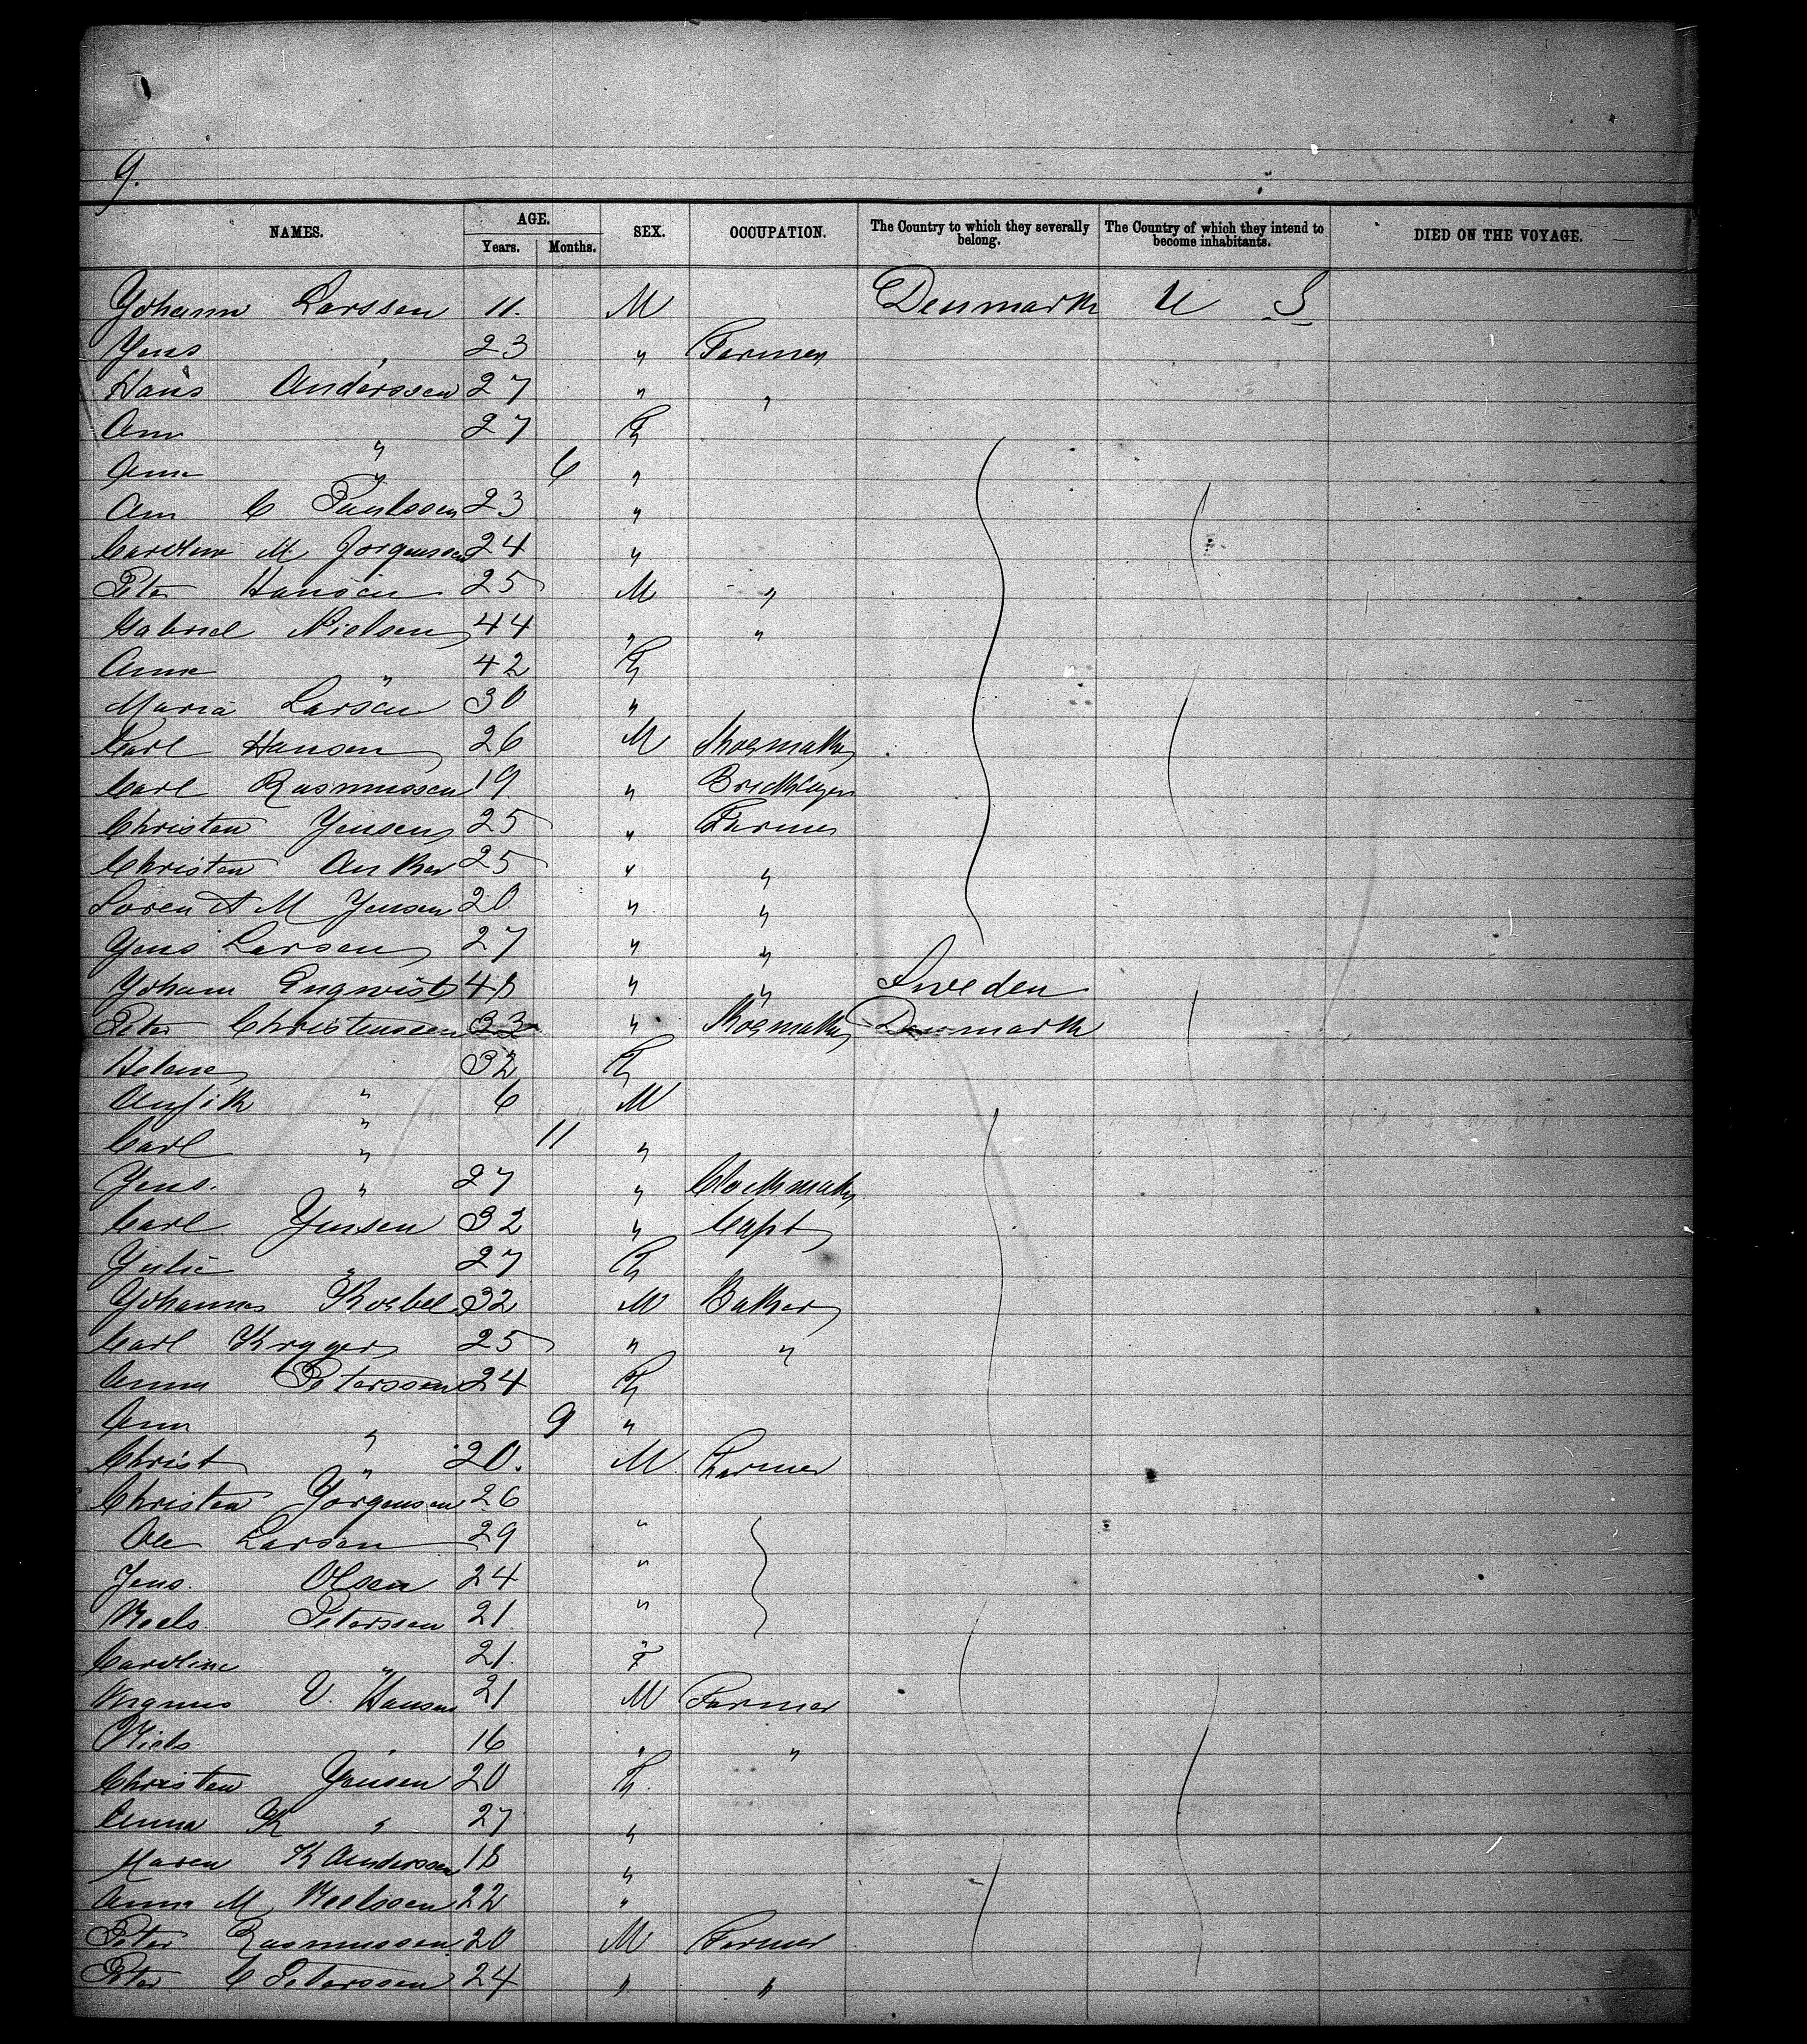 9.
NAMES. AGE. SEX. OCCUPATION. The Country to which they severally belong. The Country of which they intend to become inhabitants. DIED ON THE VOYAGE.
Years. Months.
Yohann Larssen 11. M Denmark U S
Yens " 23 " Farmer
Hans Anderssen 27 " "
Ann " 27 F
Ann " 6 "
Ann C 23 "
Carolina M Jorgenssen 24 "
Peter Hansen 25 M "
Gabriel Nielsen 44 " "
Anna " 42 F
Maria Larsen 30 "
Carl Hansen 26 M Shoemaker
Carl Rasmussen 19 " Bricklayer
Christen Yensen 25 " Farmer
Christen Anker 25 " "
Soren A M Yensen 20 " "
Yens Larsen 27 " "
Yohann Engwist 48 " " Sweden
Peter Christenssen 33 " Shoemaker Denmark
Helene " 32 F
" 6 M
Carl " 11 "
Yens. " 27 " Clockmaker
Carl Yensen 32 " Capt
Yulie " 27 F
Yohannes 32 M Baker
Carl Kryger 25 " "
Anna Peterssen 24 F
Ann " 9 "
Christ " 20. M Farmer
Christen Yorgensen 26
Ole Larsen 29 "
Jens. Olsen 24 "
Neels. Peterssen 21 "
Caroline " 21. F
Magnus V. Hansen 21 M Farmer
Niels " 16 " "
Christen Yensen 20 F.
Anna K " 27 "
Maren K Anderssen 18 "
Anna M Neelssen 22 "
Peter Rasmussen 20 M Farmer
Peter C Peterssen 24 " "